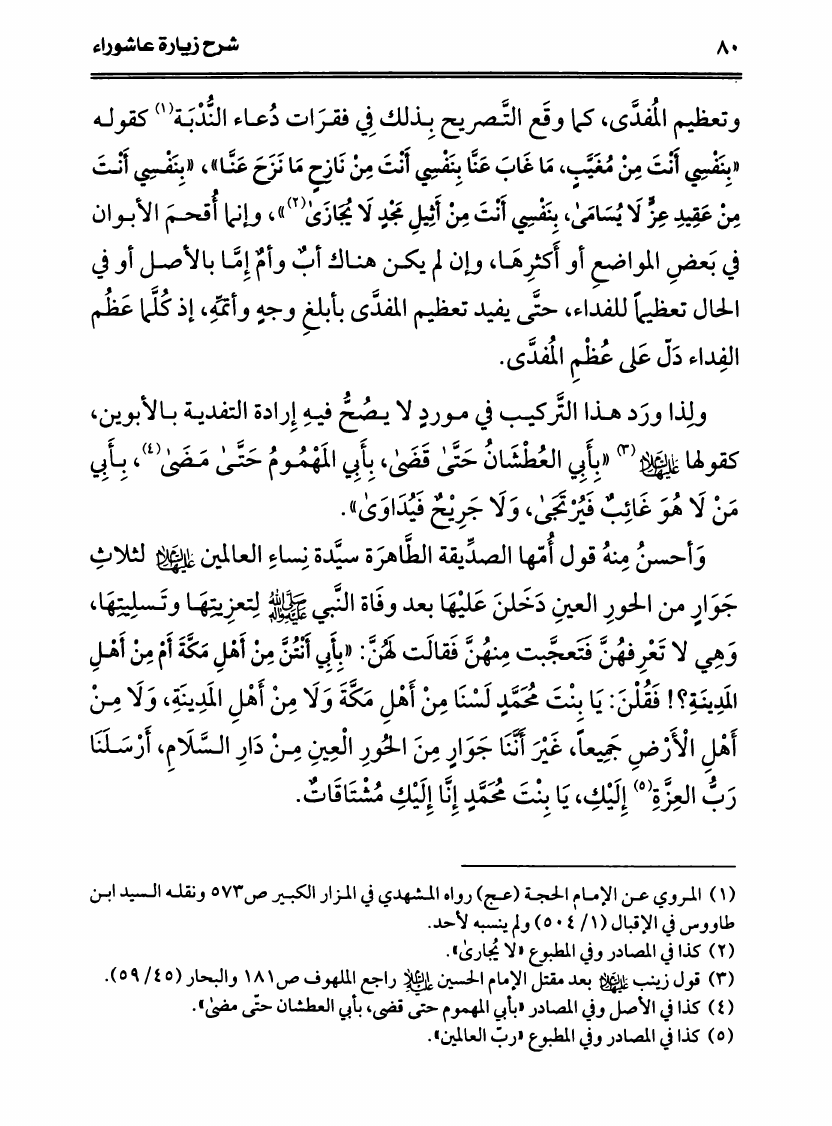 ٨٠ شرح زيارة عاشوراء
وتعظيم المُفدَّى، كما وقَع التَّصريح بِذلك في فقرَات دُعاء النُّدْبَة(١) كقوله
«بِنَفْسِي أَنْتَ مِنْ مُغَيَّبٍ، مَا غَابَ عَنَّا بِنَفْسِي أَنْتَ مِنْ نَازِحٍ مَا نَزَحَ عَنَّا»، «بِنَفْسِي أَنْتَ
مِنْ عَقِيدِ عِزٍّ لَا يُسَامَىٰ، بِنَفْسِي أَنْتَ مِنْ أَثِيلِ مَجْدٍ لَا يُجَازَىٰ(٢)»، وإنما أُقحمَ الأبوان
في بَعضِ المواضعِ أو أَكثرِهَا، وإن لم يكن هناك أبٌ وأمٌ إمَّا بالأصل أو في
الحال تعظيماً للفداء، حتَّى يفيد تعظيم المفدَّى بأبلغِ وجهٍ وأتمِّهِ، إذ كُلَّما عَظُم
الفِداء دَلّ عَلى عُظْمِ المُفدَّى.
ولِذا ورَد هذا التَّركيب في موردٍ لا يصُحُّ فيهِ إرادة التفدية بالأبوين،
كقولها عليها السلام(٣) «بِأَبِي العُطْشَانُ حَتَّىٰ قَضَىٰ، بِأَبِي المَهْمُومُ حَتَّىٰ مَضَىٰ(٤)، بِأَبِي
مَنْ لَا هُوَ غَائِبٌ فَيُرْتَجَىٰ، وَلَا جَرِيْحٌ فَيُدَاوَىٰ».
وَأحسنُ مِنهُ قول أُمّها الصدِّيقة الطَّاهرَة سيَّدة نِساءِ العالمين عليها السلام لثلاثِ
جَوَارٍ من الحورِ العينِ دَخَلنَ عَليْهَا بعد وفَاة النَّبي صلى الله عليه وآله لِتعزِيتِهَا وتَسلِيتِهَا،
وَهِي لا تَعْرِفهُنَّ فَتَعجَّبت مِنهُنَّ فَقالَت لهُنَّ: «بِأَبِي أَنْتُنَّ مِنْ أَهْلِ مَكَّةَ أَمْ مِنْ أَهْلِ
المَدِينَةِ؟! فَقُلْنَ: يَا بِنْتَ مُحَمَّدٍ لَسْنَا مِنْ أَهْلِ مَكَّةَ وَلَا مِنْ أَهْلِ المَدِينَةِ، وَلَا مِنْ
أَهْلِ الْأَرْضِ جَمِيعاً، غَيْرَ أَنَّنَا جَوَارٍ مِنَ الحُورِ الْعِينِ مِنْ دَارِ السَّلَامِ، أَرْسَلَنَا
رَبُّ العِزَّةِ(٥) إِلَيْكِ، يَا بِنْتَ مُحَمَّدٍ إِنَّا إِلَيْكِ مُشْتَاقَاتٌ.
(١) المروي عن الإمام الحجة (عج) رواه المشهدي في المزار الكبير ص٥٧٣ ونقله السيد ابن
طاووس في الإقبال (١/ ٥٠٤) ولم ينسبه لأحد.
(٢) كذا في المصادر وفي المطبوع «لا يُجارىٰ».
(٣) قول زينب عليها السلام بعد مقتل الإمام الحسين عليه السلام راجع الملهوف ص١٨١ والبحار (٤٥/ ٥٩).
(٤) كذا في الأصل وفي المصادر «بأبي المهموم حتى قضى، بأبي العطشان حتّى مضىٰ».
(٥) كذا في المصادر وفي المطبوع «ربّ العالمين».